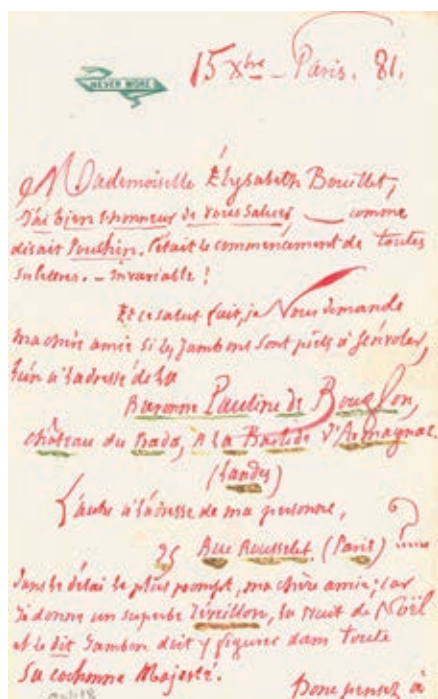 NEVER MORE
15 Xbre _ Paris. 81.
Mademoiselle Élysabeth Bouillet,
J'ai bien l'honneur de vous saluer, — comme
disait Pouchin. C'était le commencement de toutes
ses lettres. — Invariable !
Et ce salut fait, je Vous demande
ma chère amie si les Jambons sont prêts à s'envoler,
l'un à l'adresse de la
Baronne Pauline de Bouglon,
château du Prada, A La Bastide d'Armagnac
(Landes)
L'autre à l'adresse de ma personne,
25 Rue Rousselet (Paris)
Dans le délai le plus prompt, ma chère amie ; car
Je donne un superbe réveillon, la nuit de Noël
et le dit Jambon doit y figurer dans toute
Sa cochonne Majesté.
Donc pensez à